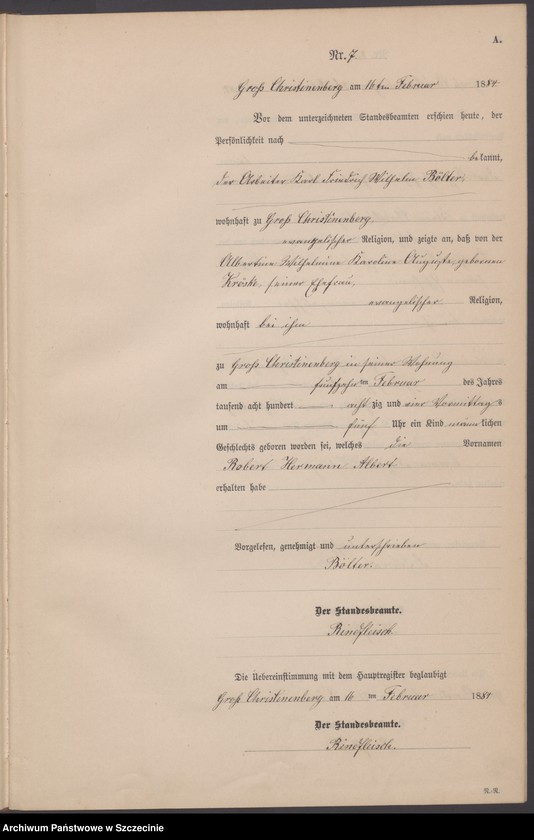 A.
Nr. 7
Groß Christinenberg am 16ten Februar 1884
Vor dem unterzeichneten Standesbeamten erschien heute, der
Persönlichkeit nach
bekannt,
der Arbeiter Karl Friedrich Wilhelm Bölter,
wohnhaft zu Groß Christinenberg
evangelischer Religion, und zeigte an, daß von der
Albertine Wilhelmine Karoline Auguste, geborenen
Kröski, seiner Ehefrau,
evangelischer Religion,
wohnhaft bei ihm
zu Groß Christinenberg in seiner Wohnung
am fünfzehnten Februar des Jahres
tausend acht hundert achtzig und vier Vormittags
um fünf Uhr ein Kind männlichen
Geschlechts geboren worden sei, welches die Vornamen
Robert Hermann Albert
erhalten habe
Vorgelesen, genehmigt und unterschrieben
Bölter.
Der Standesbeamte.
Rindfleisch.
Die Uebereinstimmung mit dem Hauptregister beglaubigt
Groß Christinenberg am 16ten Februar 1884
Der Standesbeamte.
Rindfleisch.
Archiwum Państwowe w Szczecinie